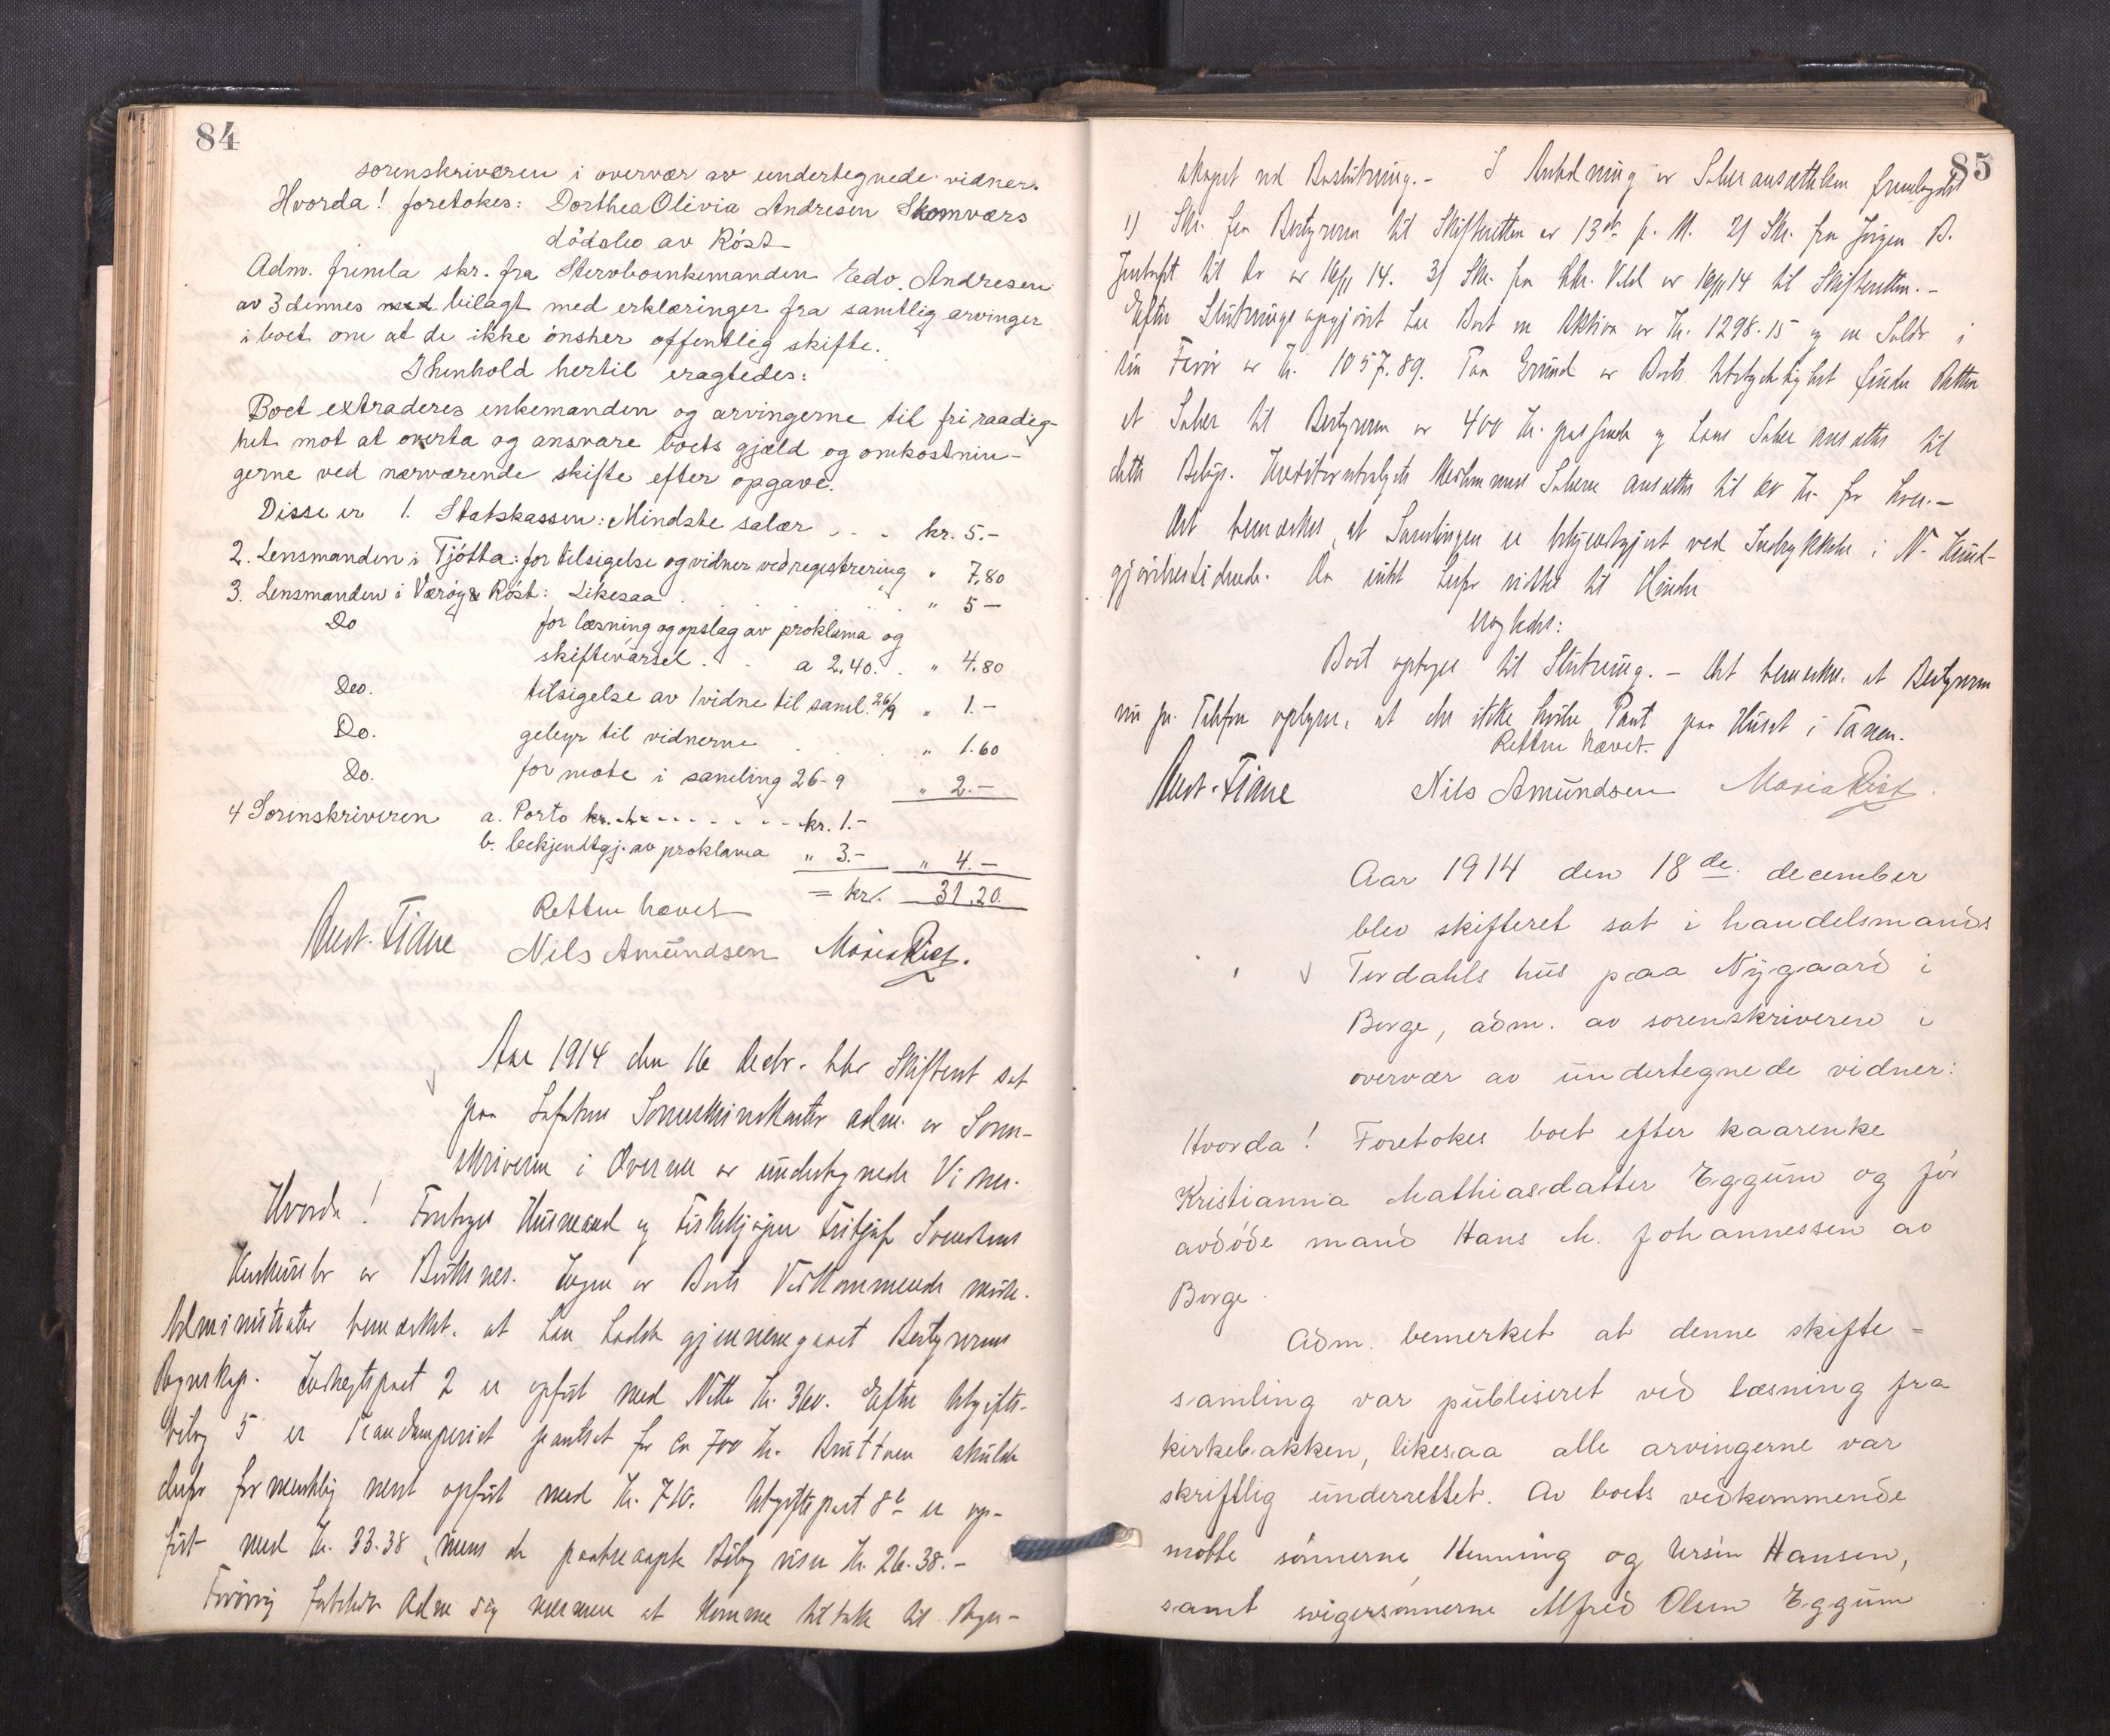 84
sorenskriveren i overvær av undertegnede vidner.
Hvorda! foretokes: Dorthea Olivia Andresen Skomværs
dödsbo av Röst
Adm. fremla skr. fra Stervboenkemanden Edv. Andresen
av 3 dennes bilagt med erklæringer fra samtlig arvinger
i boet om at de ikke önsker offentlig skifte.
I henhold hertil eragtedes:
Boet extraderes enkemanden og arvingerne til fri raadig-
het mot at overta og ansvare boets gjæld og omkostnin-
gerne ved nærværende skifte efter opgave.
Disse er 1. Statskassen: Mindste salær . . . kr. 5.-
2. Lensmanden i Tjötta: for tilsigelse og vidner ved registrering " 7,80
3. Lensmanden i Værøy & Röst: Likesaa " 5 -
Do for læsning og opslag av proklama og
skiftevarsel . . a 2.40. . " 4.80
Do. tilsigelse av 1 vidne til saml. 26/9 " 1.-
Do. gebyr til vidnerne . . . " 1.60
Do. for møte i samling 26-9 " 2.-
4 Sorenskriveren a. Porto kr. 1.-
b. bekjendtgj. av proklama " 3.- " 4.-
= kr. 31.20.
Retten hævet
Aust. Tiane Nils Amundsen Maria Rist.
Aar 1914 den 16 Decbr. blev Skifteret sat
paa Lofotens Sorenskriverkontor adm. av Soren-
skriveren i Overvær av undertegnede Vidner.
Hvorda! Foretages Husmand og Fiskekjøper Fritjof Svendsens
Konkursbo av Buksnes. Ingen av Boets Vedkommende møtte.
Administrator bemerket, at han hadde gjennemgaaet Bestyrerens
Regnskap. Indtægtspost 2 er opført med Netto Kr. 360. Efter Utgifts-
bilag 5 er pantsat for Kr. 700 Kr. Bruttoen skulde
derfor formentlig været opført med Kr. 710. Utgiftspost 8 er op-
ført med Kr. 33.38, mens det paaberaapte Bilag viser Kr. 26.38.-
Forøvrig forbeholdt Adm sig nærmere at komme tilbake til Regn-
85
skapet ved Beslutning.- I Anledning av Salæransættelsen fremlagdes
1) Skr. fra Bestyreren til Skifteretten av 13de ds. M. 2) Skr. fra Jörgen B.
til av 16/11 14. 3) Skr. fra til Skifteretten.-
Efter Slutningsopgjöret har Boet en Aktiva av Kr. 1298.15 og en Saldo i
sin Favör av Kr. 1057.89. Paa Grund av Boets finder Retten
et Salær til Bestyreren av 400 Kr. passende og hans Salær ansættes til
dette Belöp. Salærer ansættes til Kr. for hver.-
Det bemerkes, at Samlingen er bekjendtgjort ved Indrykkelse i N. Kund-
gjörelsestidende. Da intet
eragtedes:
Boet optages til Slutning. - Det bemerkes, at Bestyreren
nu pr. Telefon oplyser, at der ikke hviler Pant paa Huset i
Retten hævet.
Aust. Tiane Nils Amundsen Maria Rist.
Aar 1914 den 18de. december
blev skifteret sat i handelsmands
Tordahls hus paa Nygaard i
Borge, adm. av sorenskriveren i
overvær av undertegnede vidner:
Hvorda! Foretokes boet efter kaarenke
Kristianna Mathiasdatter Eggum og för
avdöde mand Hans M. Johannessen av
Borge.
Adm. bemerket at denne skifte =
samling var publiseret ved læsning fra
kirkebakken, likesaa alle arvingerne var
skriftlig underrettet. Av boets vedkommende
mötte sönnerne, Henning og Ursin Hansen,
samt svigersönnerne Alfred Olsen Eggum